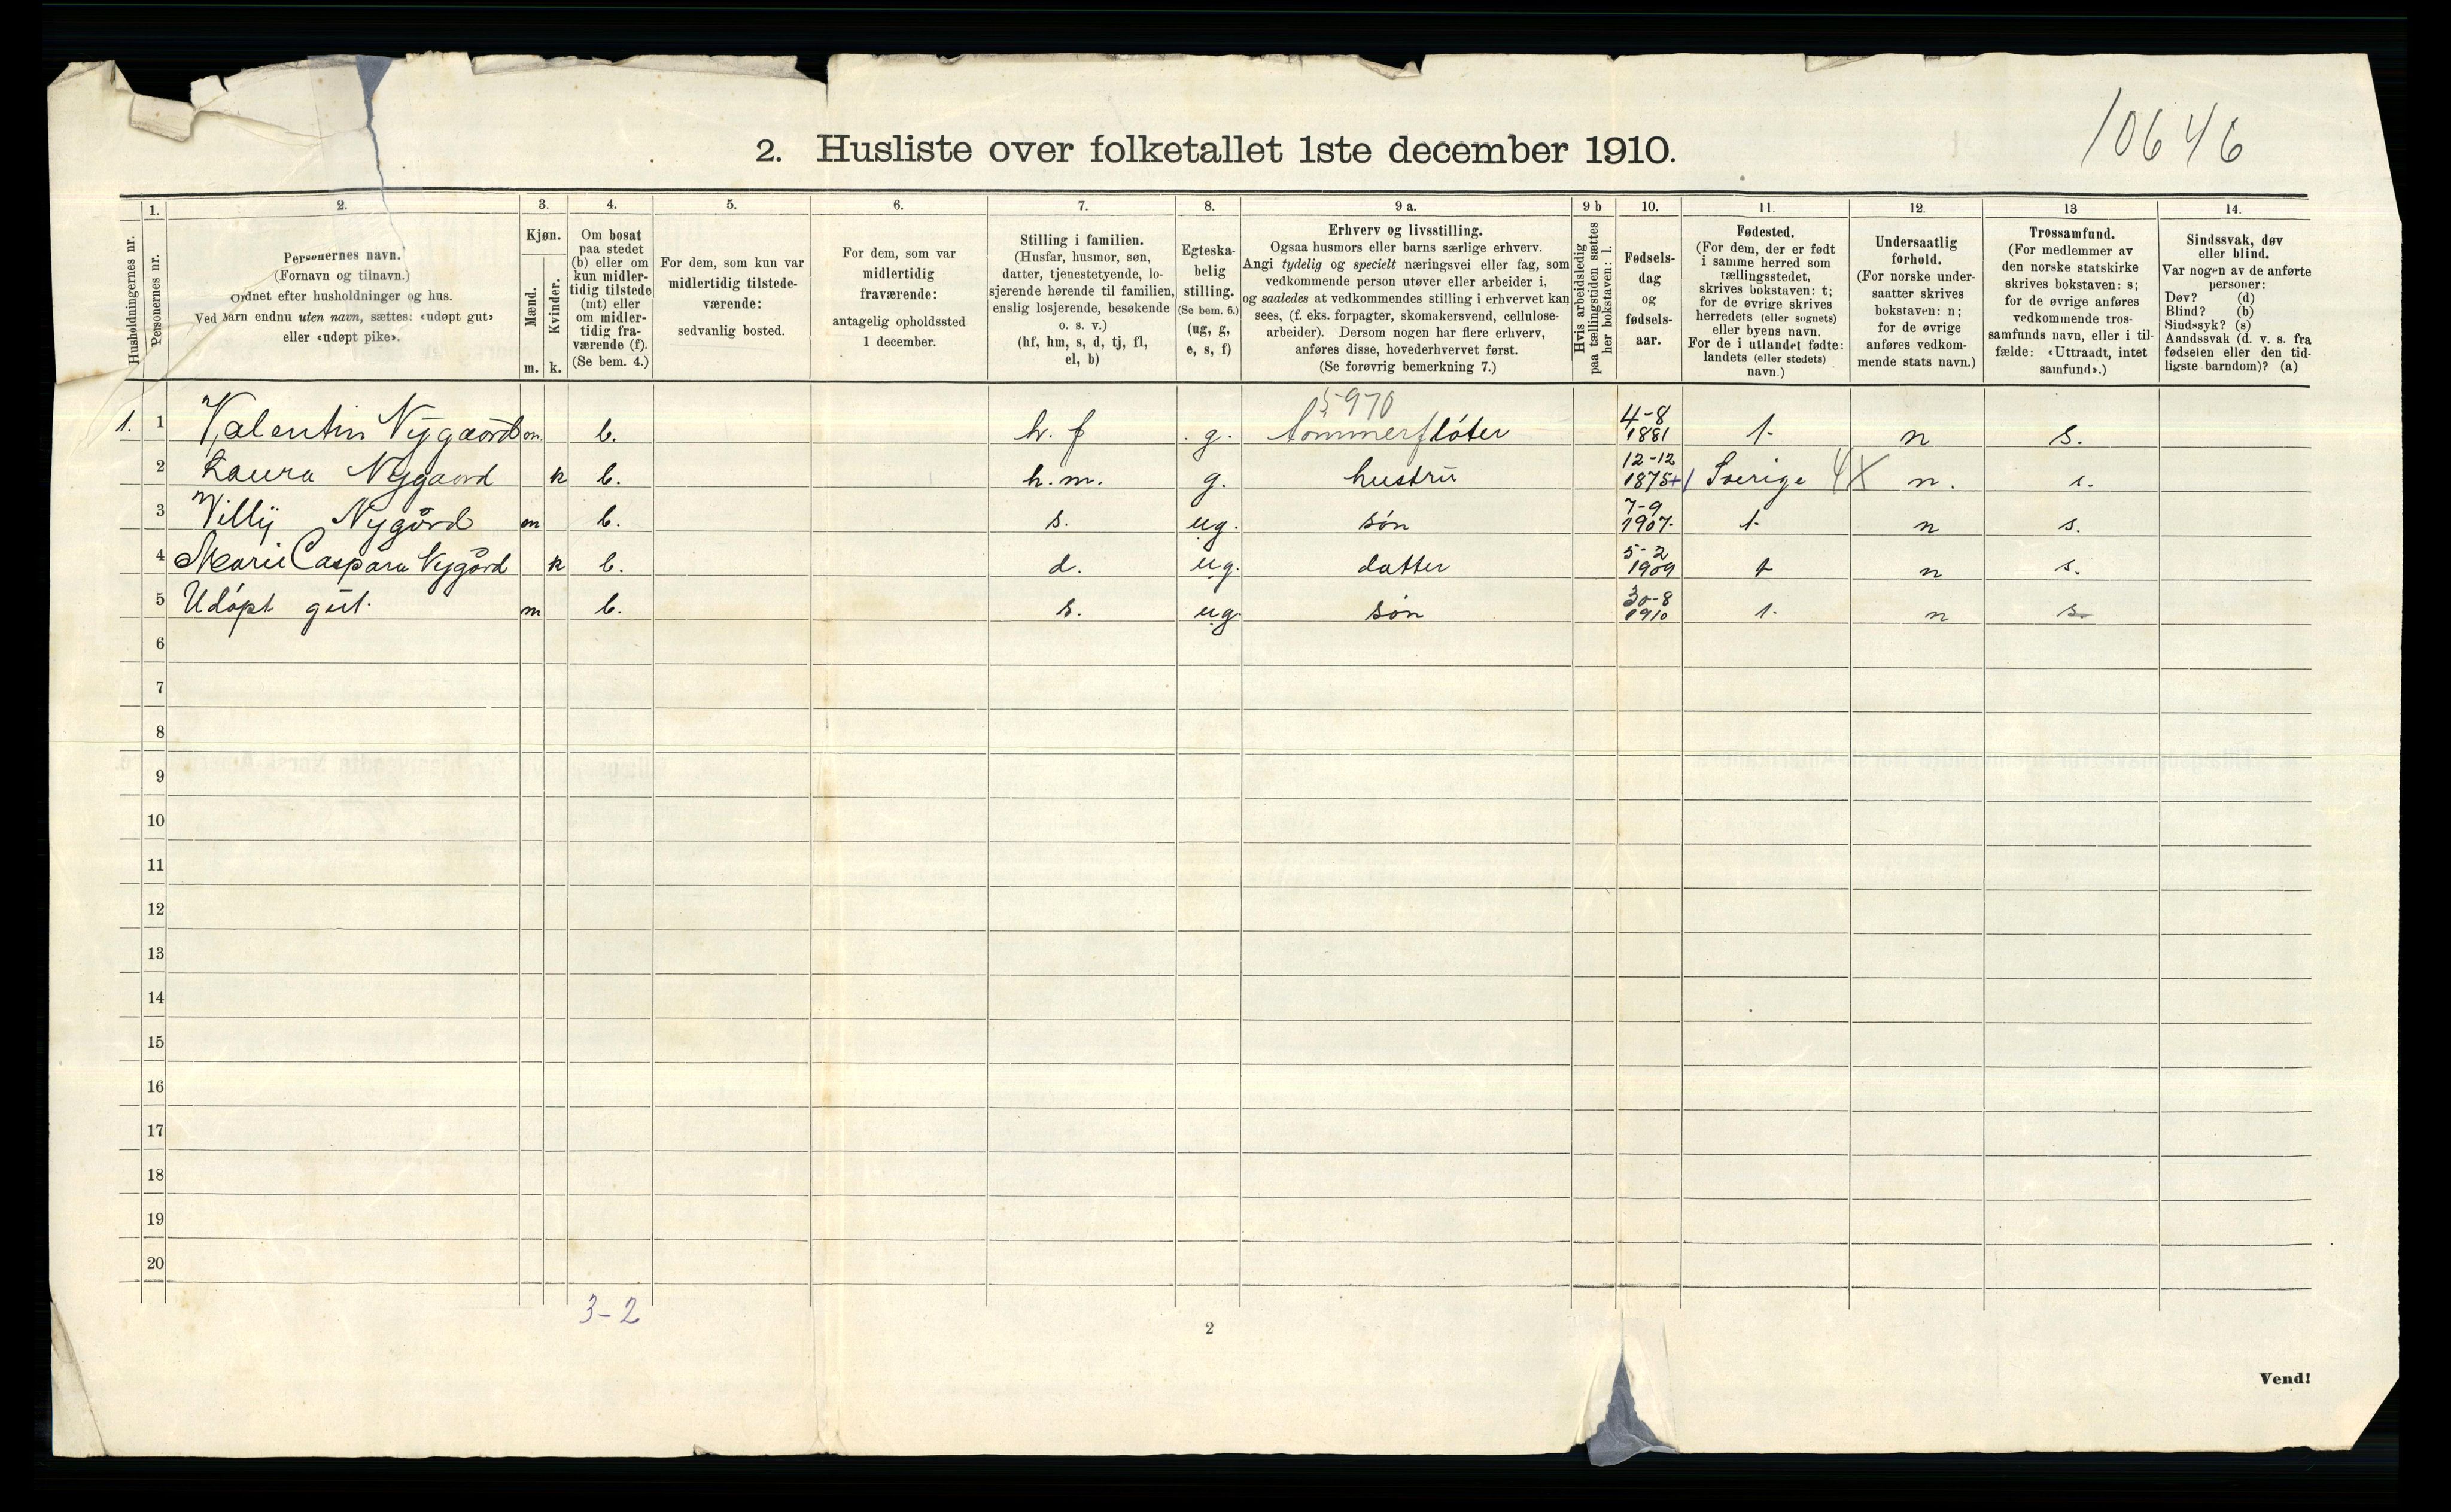 10646
2. Husliste over folketallet 1ste december 1910.
Husholdningernes nr.
1.
Personernes nr.
2.
Personernes navn.
(Fornavn og tilnavn.)
Ordnet efter husholdninger og hus.
Ved barn endnu uten navn, sættes: «udøpt gut»
eller «udøpt pike».
3.
Kjøn.
Mænd.
Kvinder.
m. k.
4.
Om bosat
paa stedet
(b) eller om
kun midler-
tidig tilstede
(mt) eller
om midler-
tidig fra-
værende (f).
(Se bem. 4.)
5.
For dem, som kun var
midlertidig tilstede-
værende:
sedvanlig bosted.
6.
For dem, som var
midlertidig
fraværende:
antagelig opholdssted
1 december.
7.
Stilling i familien.
(Husfar, husmor, søn,
datter, tjenestetyende, lo-
sjerende hørende til familien,
enslig losjerende, besøkende
o. s. v.)
(hf, hm, s, d, tj, fl,
el, b)
8.
Egteska-
belig
stilling.
(Se bem. 6.)
(ug, g,
e, s, f)
9 a.
Erhverv og livsstilling.
Ogsaa husmors eller barns særlige erhverv.
Angi tydelig og specielt næringsvei eller fag, som
vedkommende person utøver eller arbeider i,
og saaledes at vedkommendes stilling i erhvervet kan
sees, (f. eks. forpagter, skomakersvend, cellulose-
arbeider). Dersom nogen har flere erhverv,
anføres disse, hovederhvervet først.
(Se forøvrig bemerkning 7.)
9 b
Hvis arbeidsledig
paa tællingstiden sættes
her bokstaven: l.
10.
Fødsels-
dag
og
fødsels-
aar.
11.
Fødested.
(For dem, der er født
i samme herred som
tællingsstedet,
skrives bokstaven: t;
for de øvrige skrives
herredets (eller sognets)
eller byens navn.
For de i utlandet fødte:
landets (eller stedets)
navn.)
12.
Undersaatlig
forhold.
(For norske under-
saatter skrives
bokstaven: n;
for de øvrige
anføres vedkom-
mende stats navn.)
13
Trossamfund.
(For medlemmer av
den norske statskirke
skrives bokstaven: s;
for de øvrige anføres
vedkommende tros-
samfunds navn, eller i til-
fælde: «Uttraadt, intet
samfund».)
14.
Sindssvak, døv
eller blind.
Var nogen av de anførte
personer:
Døv? (d)
Blind? (b)
Sindssyk? (s)
Aandssvak (d. v. s. fra
fødselen eller den tid-
ligste barndom)? (a)
5970
1. 1 Valentin Nygaard m. b. h. f g. tømmerfløter 4-8 1881 t. n s.
2 Laura Nygaard k b. h. m. g. hustru 12-12 1875 Sverige n. s.
3 Villy Nygård m b. s. ug. søn 7-9 1907 t. n s.
4 Marie Caspara Nygård k b. d. ug. datter 5-2 1909 t n s.
5 Udøpt gut. m b. s. ug søn 30-8 1910 t. n s
6
7
8
9
10
11
12
13
14
15
16
17
18
19
20
3-2
2
Vend!